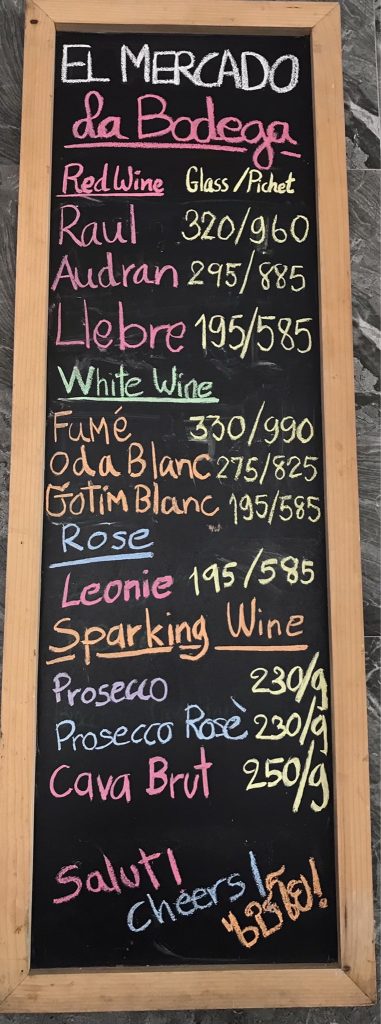 EL MERCADO
da Bodega
Red Wine Glass/Pichet
Raul 320/960
Audran 295/885
Llebre 195/585
White Wine
Fumé 330/990
Oda Blanc 275/825
Gotim Blanc 195/585
Rose
Leonie 195/585
Sparking Wine
Prosecco 230/g
Prosecco Rosè 230/g
Cava Brut 250/g
Salut!
cheers!
ไชโย!